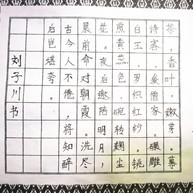 茶。香叶，嫩芽。慕
诗客，爱僧家。碾雕
白玉，罗织红纱。铫
煎黄蕊色，碗转曲尘
花。夜后邀陪明月，
晨前命对朝霞。洗尽
古今人不倦，将知醉
后岂堪夸。
刘子川书